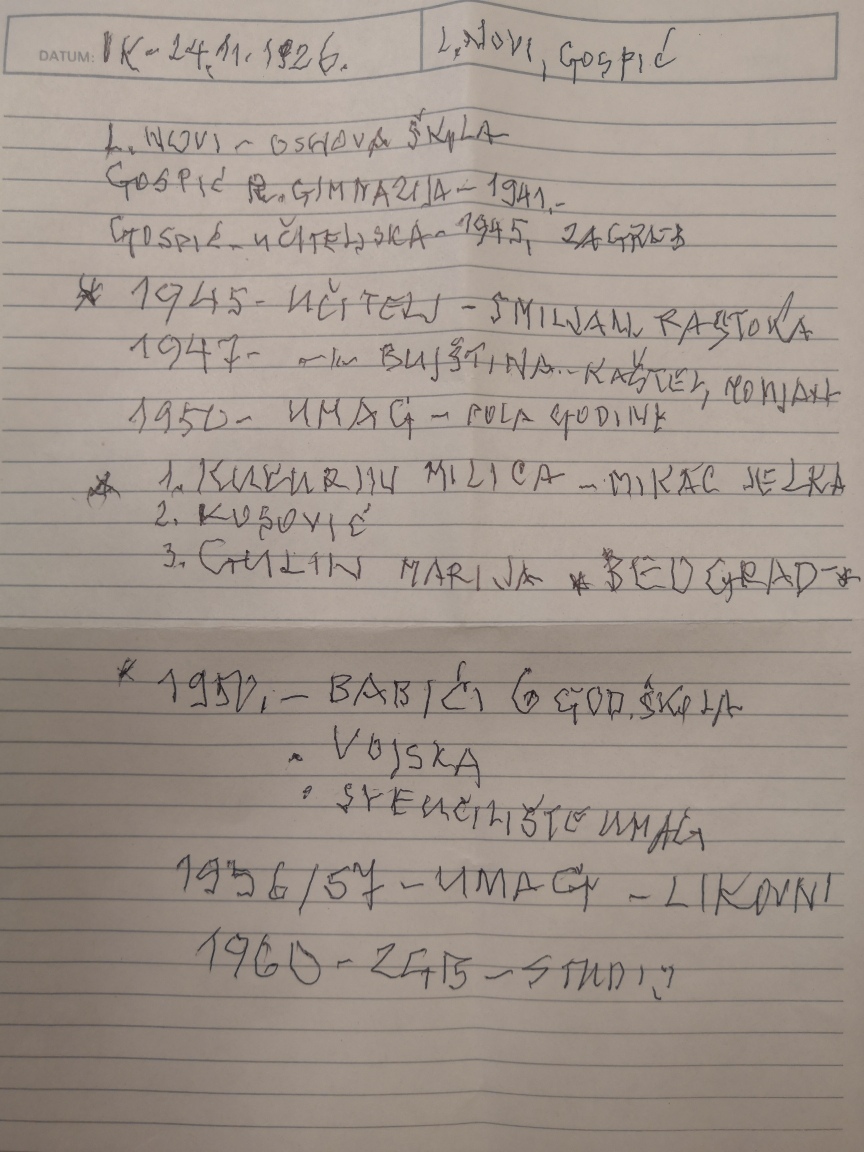 DATUM: IK-24.11.1926. L.NOVI, GOSPIĆ
L. NOVI - OSNOVA ŠKOLA
GOSPIĆ R. GIMNAZIJA - 1941.-
GOSPIĆ - UČITELJSKA - 1945, ZAGREB
* 1945- UČITELJ - SMILJAN, RASTOKA
1947- -"- BUJŠTINA - KAŠTEL, MOMJAN
1950- UMAG - POLA GODINE
* 1. MILICA - MIKAC JELKA
2. KOSOVIĆ
3. GULIN MARIJA * BEOGRAD-*
* 1950. - BABIĆI 6 GOD. ŠKOLA
• VOJSKA
• SVEUČILIŠTE UMAG
1956/57 - UMAG - LIKOVNI
1960 - ZGB - STUDIJ